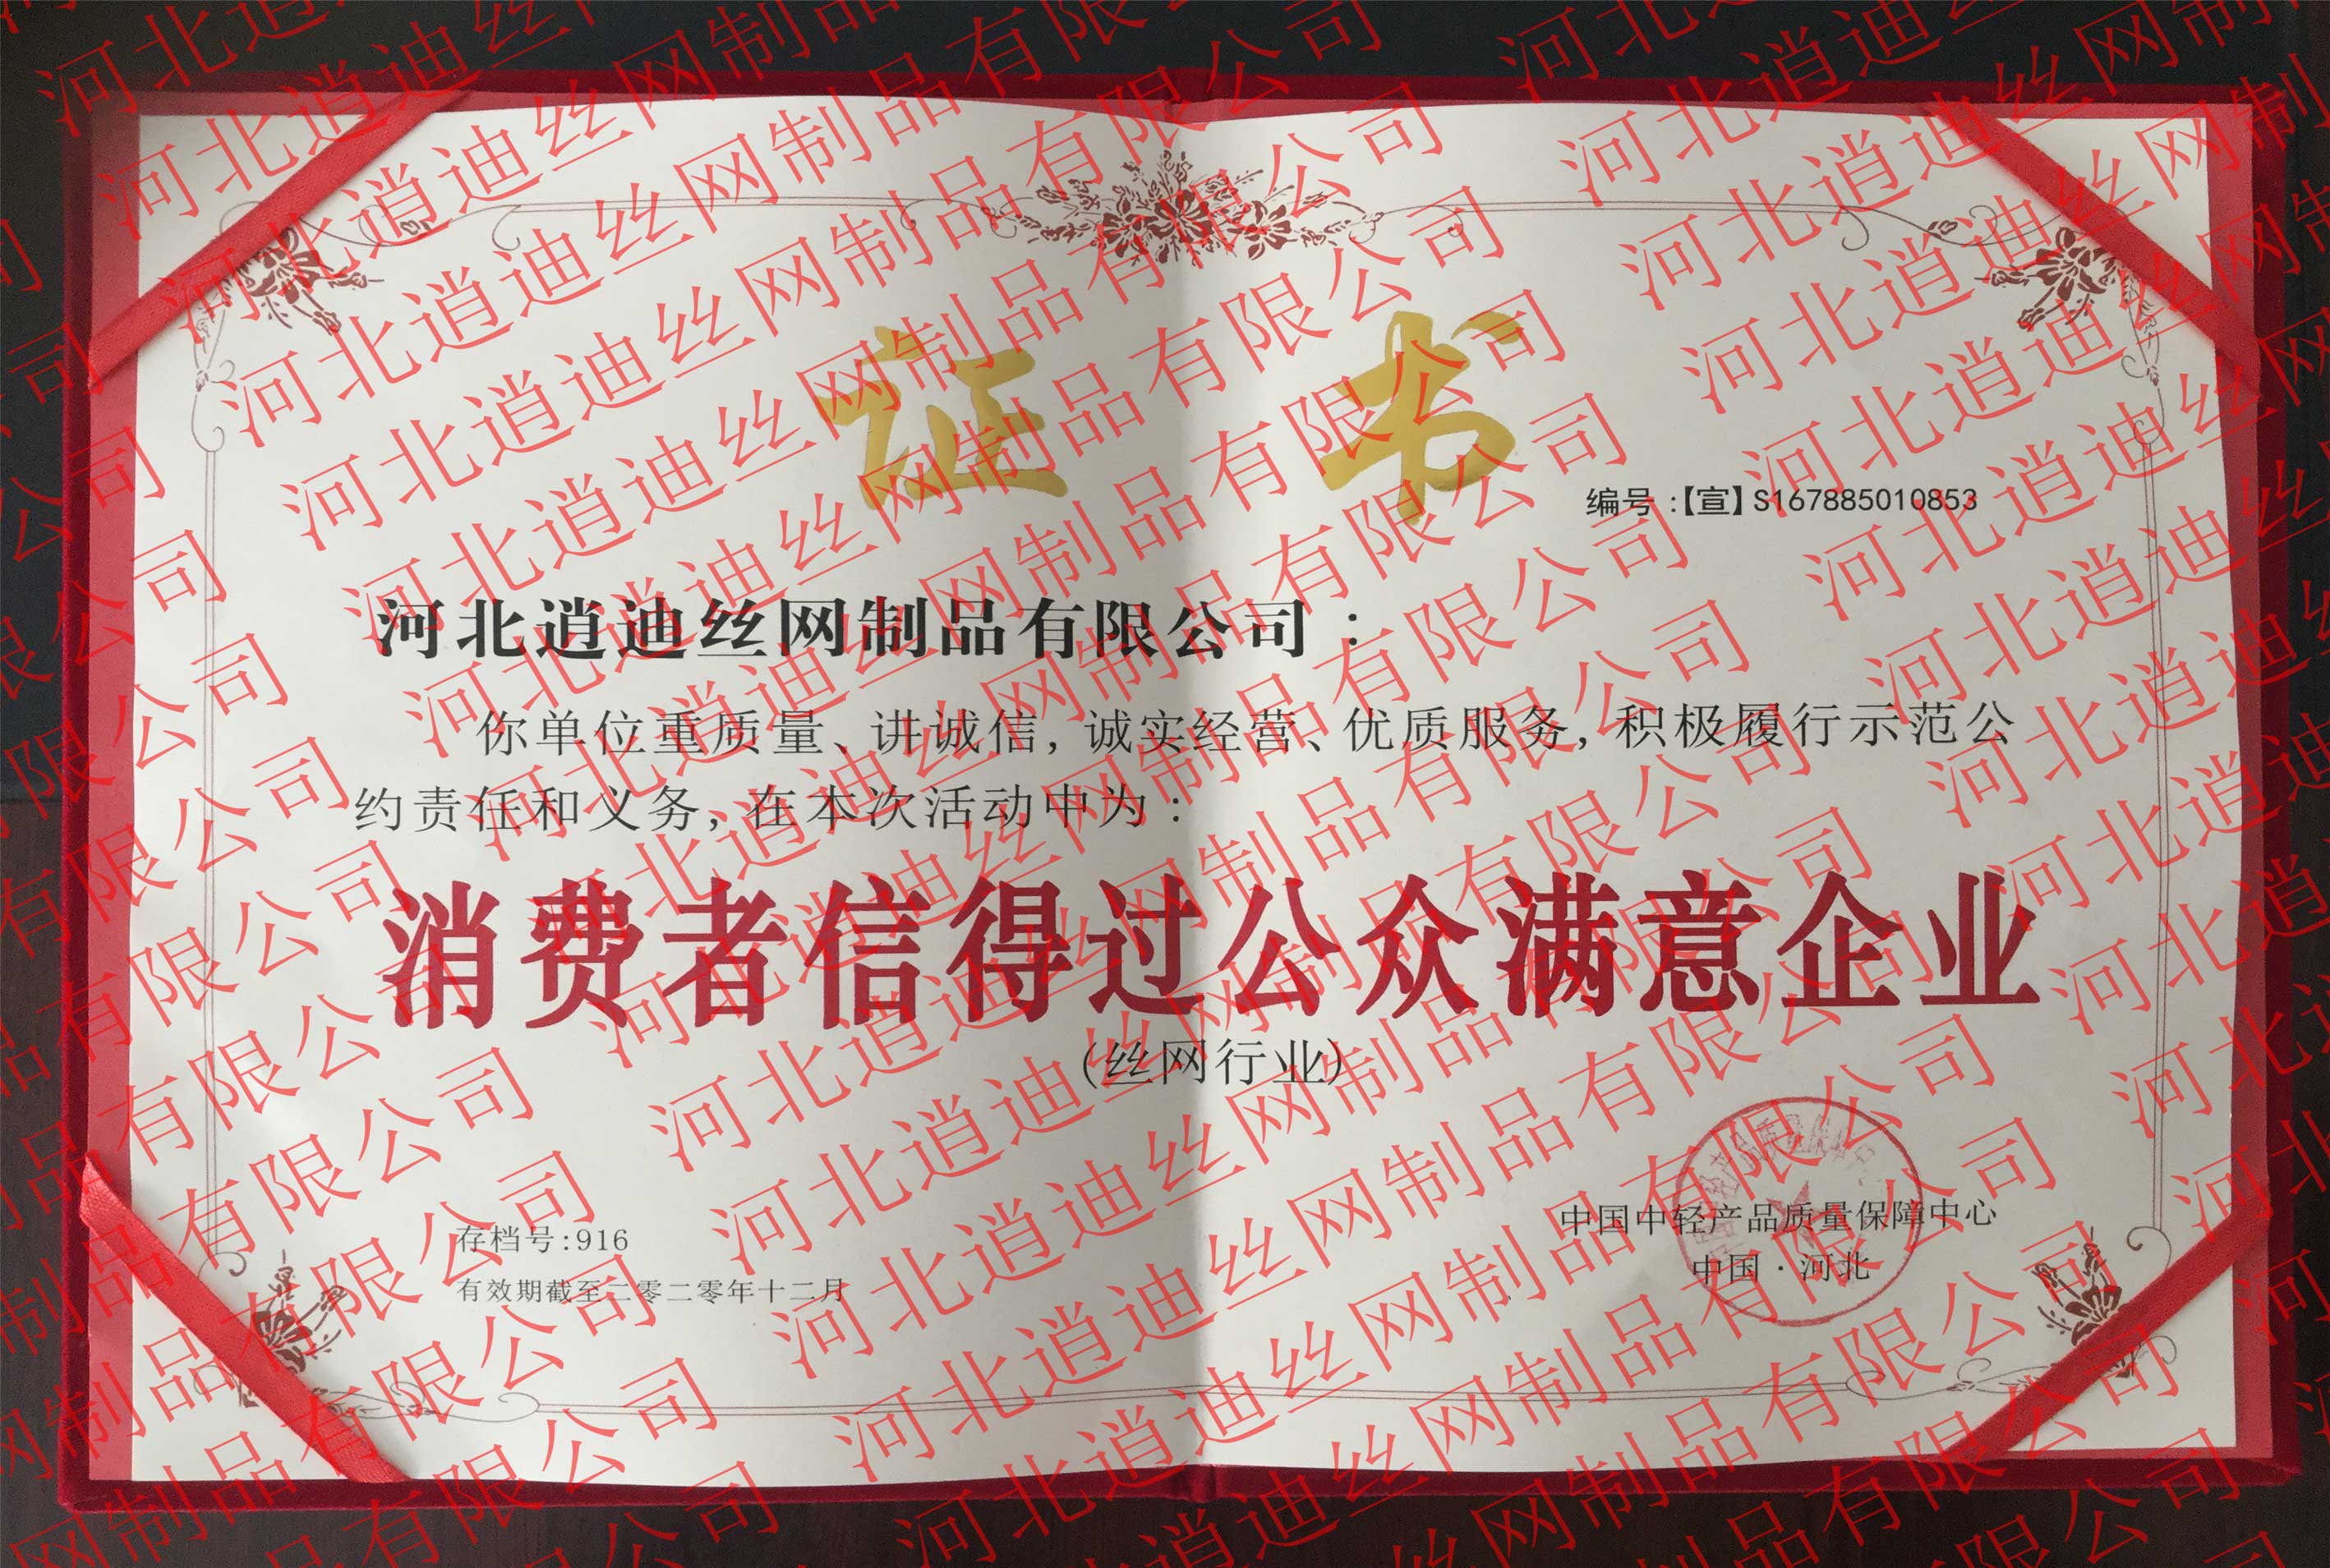 证书
编号:【宣】S167885010853
河北逍迪丝网制品有限公司:
你单位重质量、讲诚信,诚实经营、优质服务,积极履行示范公
约责任和义务,在本次活动中为:
消费者信得过公众满意企业
(丝网行业)
存档号:916
有效期截至二零二零年十二月
中国中轻产品质量保障中心
中国·河北
河北逍迪丝网制品有限公司